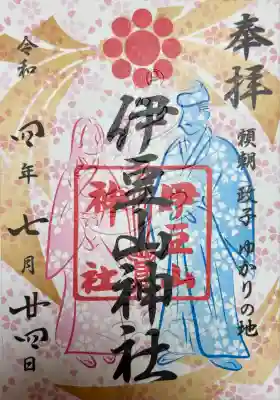 奉拝
頼朝 政子 ゆかりの地
伊豆山神社
伊豆山
神社
令和四年七月廿四日